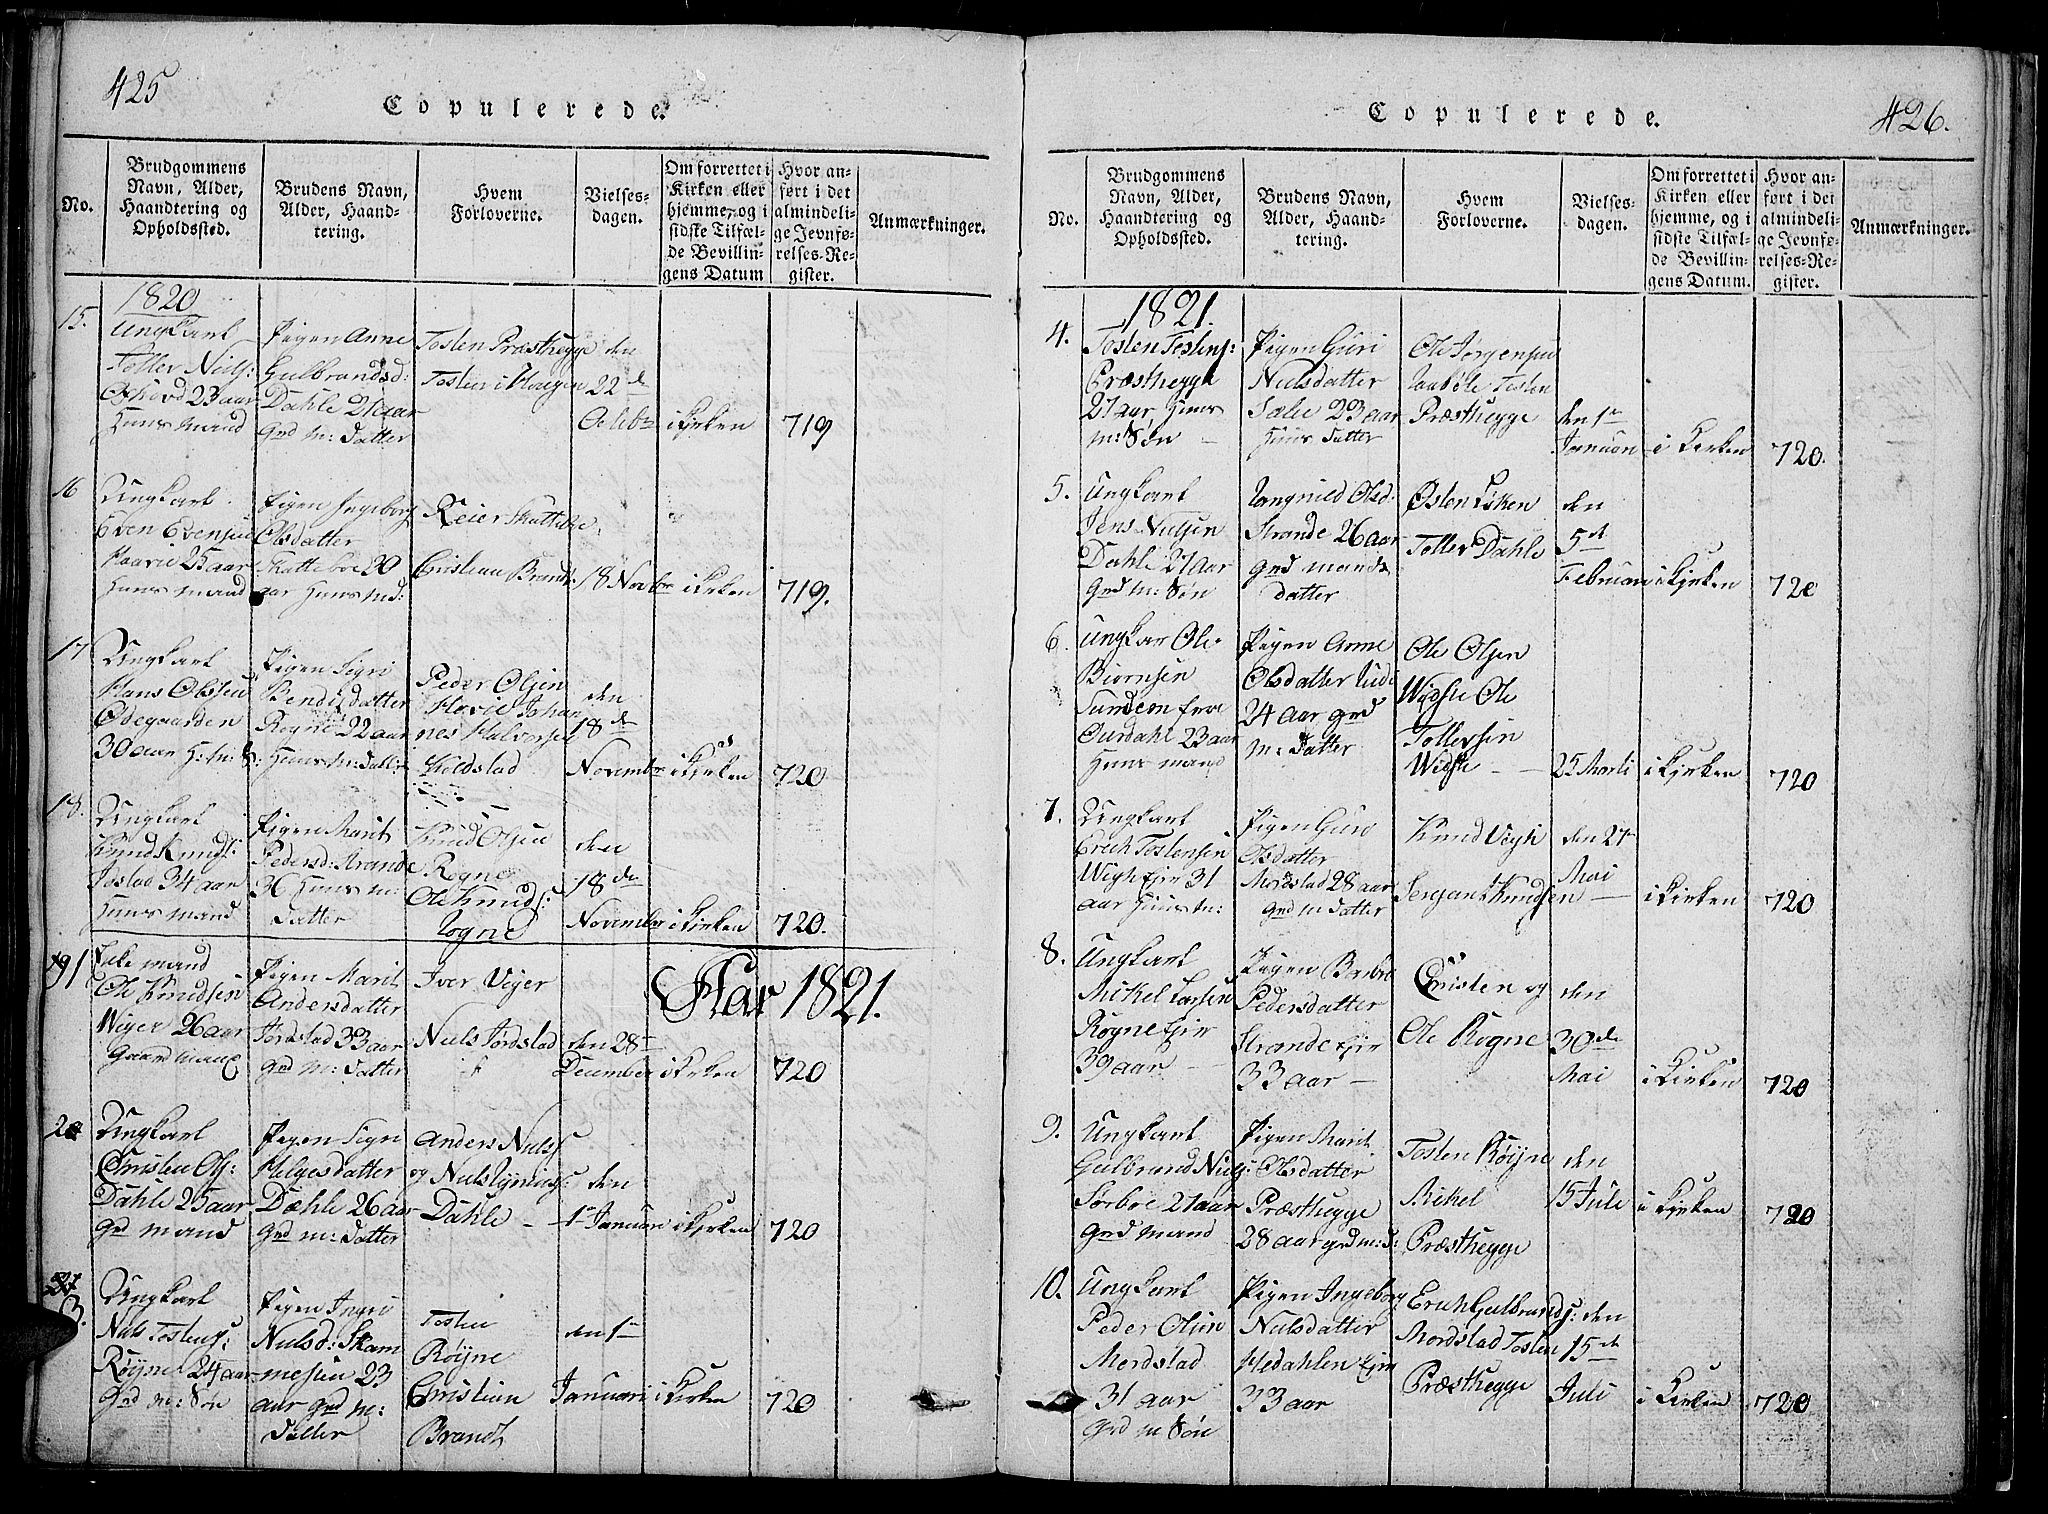 425
Copulerede.
No.
Brudgommens
Navn, Alder,
Haandtering og
Opholdssted.
Brudens Navn,
Alder, Haand-
tering.
Hvem
Forloverne.
Vielses-
dagen.
Om forrettet i
Kirken eller
hjemme, og i
sidste Tilfæl-
de Bevillin-
gens Datum
Hvor an-
ført i det
almindeli-
ge Jevnfø-
relses-Re-
gister.
Anmærkninger.
1820
15.
Ungkarl
Toller Niels:
23 aar
Huus mand
Pigen Anne
Gulbrandsd:
Dahle 21 aar
Grd m: Datter
Tosten Præsthegge
Tosten i Haugen
den
22de
Octbr
i Kirken
719
16
Ungkarl
Even Evensen
Haavie 25 aar
Huus mand
Pigen Ingeborg
Olsdatter
Skatteboe 20
aar Huus md:
Reier Skatteboe
Cristian Brandt
18 Novbr
i Kirken
719.
17
Ungkarl
Hans Olssen
Ødegaarden
30 aar H: m: S:
Pigen Sigri
Bendisdatter
Rogne 22 aar
Huus m: Datt:
Peder Olsen
Hovie Johan
nes Halvorsen
Koldstad
den
18de
Novembr
i Kirken
720
18.
Ungkarl
Knud Knuds:
Jostad 34 aar
Huus mand
Pigen Marit
Pedersd: Strande
36 Huus m:
Datter
Knud Olsen
Rogne
Ole Knuds:
Rogne
den
18de
November
i Kirken
720.
19 1
Enke mand
Ole Knudsen
Wiger 26 aar
Gaard mand
Pigen Marit
Andersdatter
Jordstad 33 aar
Grd m: Datter
Iver Viger
Niels Jordstad
den 28
December
i Kirken
720
Aar 1821.
20
Ungkarl
Christen Ols:
Dahle 25 aar
Grd mand
Pigen Sigri
Helgesdatter
Dahle 26 aar
Grd m: Datter
Anders Niels:
og Niels
Dahle
den
1e Januari
i Kirken
720
3.
Ungkarl
Niels Tostens:
Røyne 24 aar
Grd m: Søn
Pigen Ingri
Nielsd: Skam
mesten 23
aar Grd m:
Datter
Tosten
Røyne
Christian
Brandt
den 1e
Januari
i Kirken
720
Copulerede.
426.
No.
Brudgommens
Navn, Alder,
Haandtering og
Opholdssted.
Brudens Navn,
Alder, Haand-
tering.
Hvem
Forloverne.
Vielses-
dagen.
Om forrettet i
Kirken eller
hjemme, og i
sidste Tilfæl-
de Bevillin-
gens Datum.
Hvor an-
ført i det
almindeli-
ge Jevnfø-
relses-Re-
gister.
Anmærkninger.
1821.
4.
Tosten Tostens:
Præsthegge
27 aar Huus
m: Søn
Pigen Guri
Nielsdatter
23 aar
Huus Datter
Ole Jørgensen
Tosten
Præsthegge
den 1e
Januari
i Kirken
720.
5.
Ungkarl
Jens Nielsen
Dahle 27 aar
Grd m: Søn
Rangnild Olsd:
Strande 26 aar
Grd mands
datter
Østen Løken
Toller Dahle
den
5te
Februari
i Kirken
720
6.
Ungkar Ole
Biørnsen
Sundem fra
Ourdahl 23 aar
Huus mand
Pigen Anne
Olsdatter
24 aar Grd
m: Datter
Ole Olsen
Widste Ole
Tollersen
Widste
25 Marti
i Kirken
720
7.
Ungkarl
Erich Tostensen
31
aar Huus m:
Pigen Guri
Olsdatter
Mordstad 28 aar
Grd m Datter
Knud
Sergant Knudsen
den 27
Mai
i Kirken
720
8.
Ungkarl
Mikel Larsen
Rogne Ejer
39 aar
Pigen Barbro
Pedersdatter
Strande Ejer
33 aar
Cristen og
Ole Rogne
den
30de
Mai
i Kirken
720
9.
Ungkarl
Gulbrand Niels:
Sørboe 27 aar
Grd mand
Pigen Marit
Olsdatter
Præsthegge
28 aar grd m: d:
Tosten Røyne
Mikel
Præsthegge
den
15 Jule
i Kirken
720
10.
Ungkarl
Peder Olsen
Mordstad
31 aar
Grd m Søn
Pigen Ingeborg
Nielsdatter
Hedahlen Ejer
33 aar
Erich Gulbrands:
Mordstad Tosten
Præsthegge
den
15de
Juli
i Kirken
720